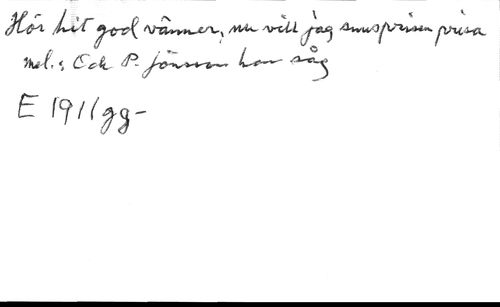 Hör hit god vänner, nu vill jag snusprisen prisa
mel.: Och P. Jönsson han såg
E 1911gg-